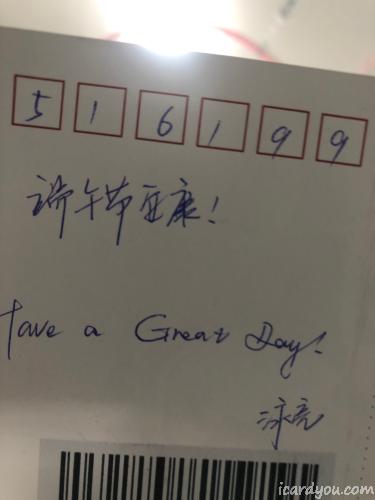 516199
端午节安康!
Have a Great Day!
icardyou.com